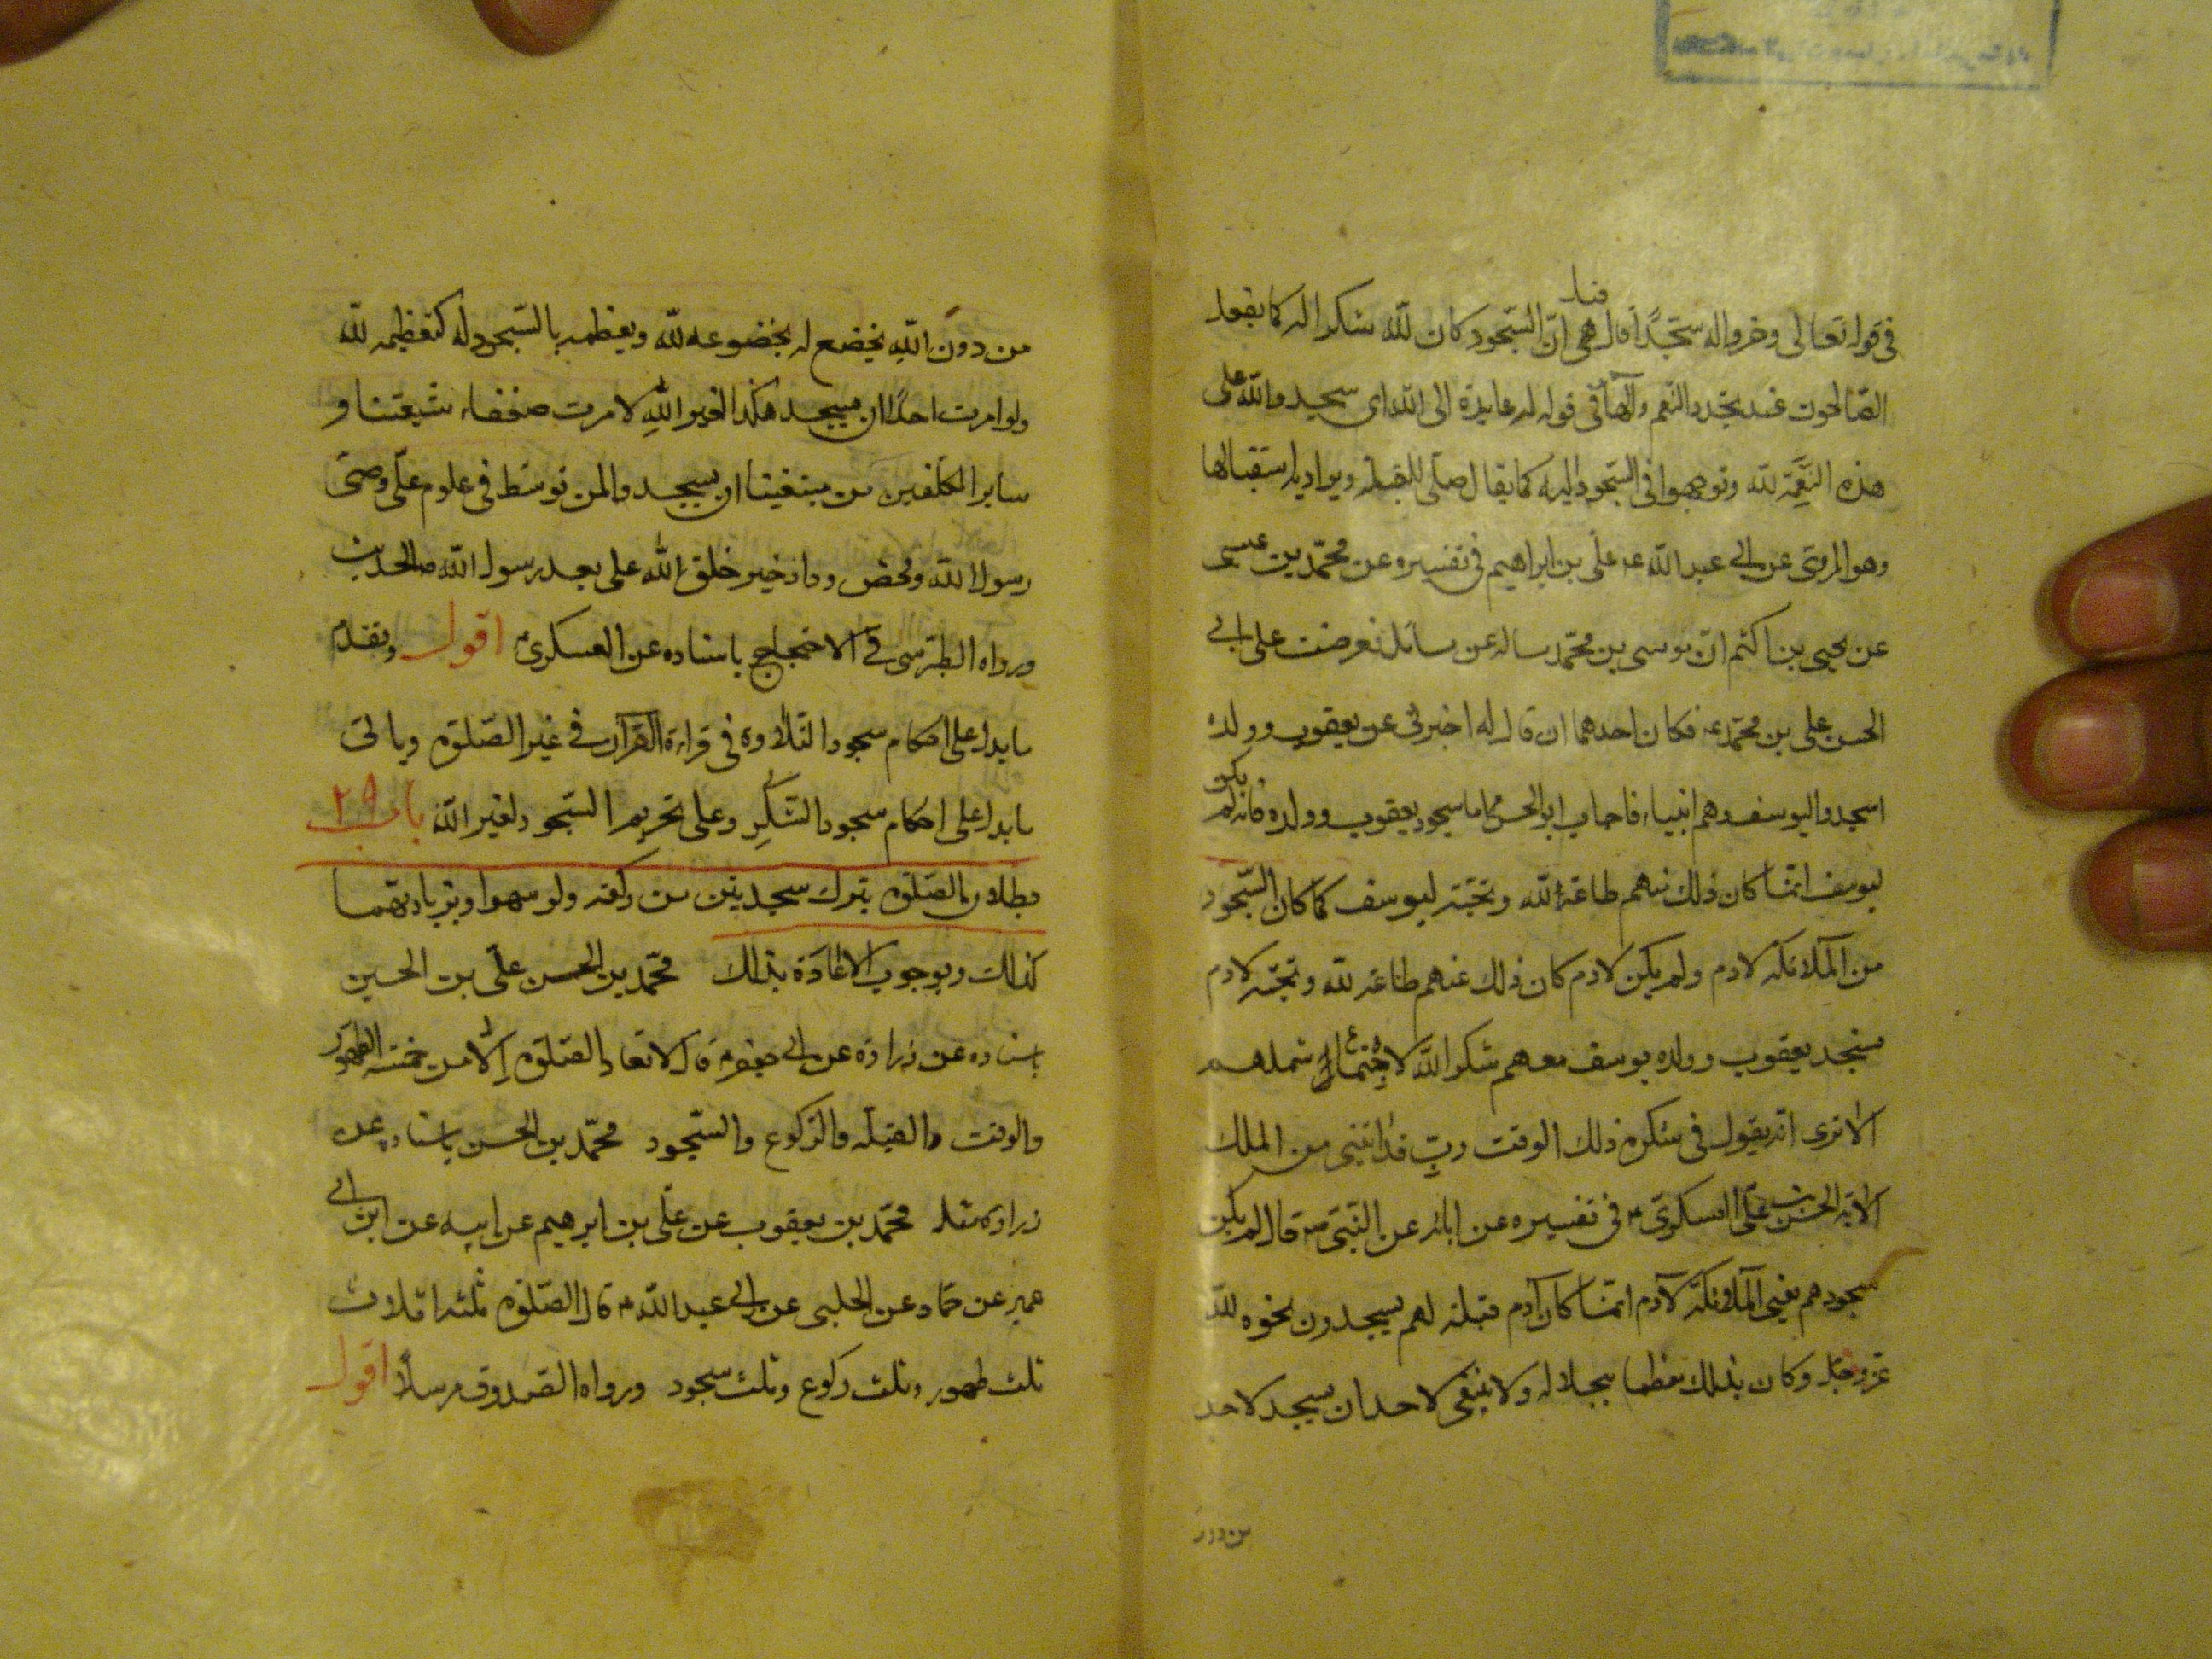 فى قوله تعالى وخروا له سجدًا قال قيل هى ان السجود كان لله شكرا له كما يفعل
الصالحون عند تجدد النعم والهآء فى قوله له عايدة الى الله اى سجدوا لله على
هذه النعمة لله وتوجهوا فى السجود اليه كما يقال صلى للقبلة ويراد به استقبالها
وهو المروى عن ابى عبد الله ع على بن ابراهيم فى تفسيره عن محمد بن عيسى
عن يحيى بن اكثم ان موسى بن محمد ساله عن مسائل فعرضت على ابى
الحسن على بن محمد ع فكان احدهما ان قال له اخبرنى عن يعقوب وولده
اسجدوا ليوسف وهم انبياء فاجاب ابو الحسن ع اما سجود يعقوب وولده فانه لم يكن
ليوسف انما كان ذلك منهم طاعة لله وتحية ليوسف كما كان السجود
من الملائكة لادم ولم يكن لادم كان ذلك منهم طاعة لله وتحية لادم
فسجد يعقوب وولده ويوسف معهم شكرا لله لاجتماع شملهم
الا ترى انه يقول فى شكره ذلك الوقت رب قد اتيتنى من الملك
الاية الحسن بن على العسكرى ع فى تفسيره عن ابائه عن النبى ص قال لم يكن
سجودهم يعنى الملائكة لآدم انما كان آدم قبلة لهم يسجدون نحوه لله
عز وجل وكان بذلك معظما مبجلا له ولا ينبغى لاحد ان يسجد لاحد
من دون
من دون الله يخضع له بخضوعه لله ويعظمه بالسجود له كتعظيمه لله
ولو امرت احدًا ان يسجد هكذا لغير الله لامرت ضعفاء شيعتنا و
ساير المكلفين من متبعينا ان يسجدوا لمن توسط فى علوم على وصى
رسول الله ومحض وداد خير خلق الله على بعد رسول الله ص الحديث
ورواه الطبرسى فى الاحتجاج باسناده عن العسكرى ع اقول وتقدم
ما يدل على احكام سجود التلاوة فى قراءة القرآن فى غير الصلوة وياتى
ما يدل على احكام سجود الشكر وعلى تحريم السجود لغير الله باب ٢٨
بطلان الصلوة بترك سجدتين من ركعة ولو سهوا وبزيادتهما
كذلك ووجوب الاعادة بذلك محمد بن الحسن على بن الحسين
باسناده عن زرارة عن ابى جعفر ع قال لا تعاد الصلوة الا من خمسة الطهور
والوقت والقبلة والركوع والسجود محمد بن الحسن باسناده عن
زرارة مثله محمد بن يعقوب عن على بن ابرهيم عن ابيه عن ابن ابى
عمير عن حماد عن الحلبى عن ابى عبد الله ع قال الصلوة ثلثة اثلاث
ثلث طهور وثلث ركوع وثلث سجود ورواه الصدوق مرسلاً اقول